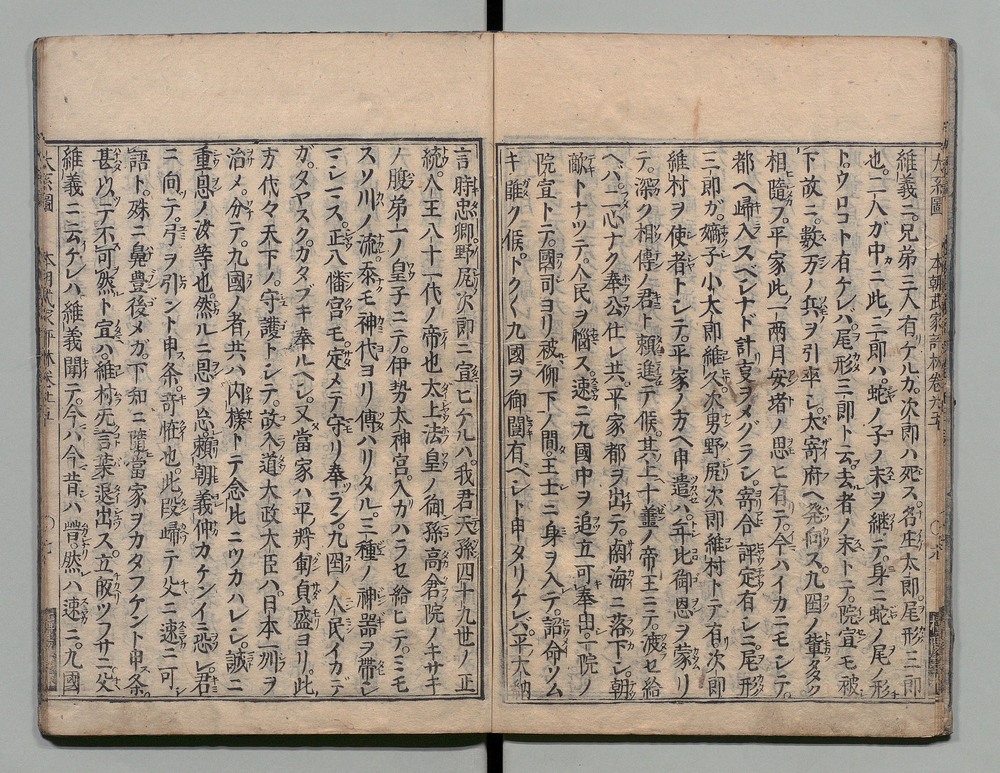 維義ニ。兄弟三人有ケルカ。次郎ハ死ス。名庄太郎。尾形三郎
也。二人ガ中ニ此三郎ハ。蛇ノ子ノ末ヲ継テ。身ニ蛇ノ尾ノ形
ト。ウロコト有ケレバ。尾形三郎ト云去者ノ末トニテ。院宣モ被
下故ニ。数万ノ兵ヲ引率シ。太宰府ヘ発向ス。九国ノ輩タダク
相随フ。平家此一両月安堵ノ思ヒ有テ。今ハイカニモシテ。
都ヘ帰入スベシナド計畧ヲメグラシ。寄合評定有シニ。尾形
三郎ガ。嫡子小太郎維久次男野尻次郎維村トテ有。次郎
維村ヲ使者トシテ。平家ノ方ヘ申遣ハ。年比御恩ヲ蒙リ
テ。深ク相傳ノ君ト頼進テ候。其上十善ノ帝王ニテ。渡セ給
ヘバ。二心ナク奉公仕レ共。平家都ヲ出テ。南海ニ落下シ。朝
敵トナツテ。人民ヲ悩ス。速ニ九国中ヲ追立可奉由。一院ノ
院宣トテ。國司ヨリ被仰下ノ間。王土ニ身ヲ入テ。詔命ソム
キ難ク候。トクトク九國ヲ御開有ベシト申タリケレバ。平大納
言時忠卿野尻次郎ニ宣ヒケルハ。我君天孫四十九世ノ正
統。人王八十一代ノ帝也太上法皇ノ御孫高倉院ノキサキ
ノ腹第一ノ皇子ニテ。伊勢太神宮。入カハラセ給ヒテ。ミモ
スソ川ノ流忝モ神代ヨリ傳ハリタル。三種ノ神器ヲ帯シ
マシマス。正八幡宮モ定メテ守リ奉ラン。九国ノ人民イカデ
ガ。タヤスク。カタブキ奉ルヘシ。又當家ハ平将軍貞盛ヨリ。此
方代々天下ノ。守護トシテ。故入道大政大臣ハ。日本一州ヲ
治メ。分テ。九國ノ者共ハ。内様トテ念比ニツカハレシ。誠ニ
重恩ノ汝等也然ルニ恩ヲ忘。頼朝義仲カケンイニ恐レ。君
ニ向テ。弓ヲ引ント申ス条。奇怪也。此段帰テ父ニ速ニ可
語ト。殊ニ鼻豊後メガ。下知ニ隨。當家ヲカタフケント申条。
甚以ッテ不可然ト宣ハ。維村旡言葉退出ス。立皈ツフサニ父
維義ニ云ケレハ維義聞テ。今ハ今昔ハ昔。然ハ速ニ。九國